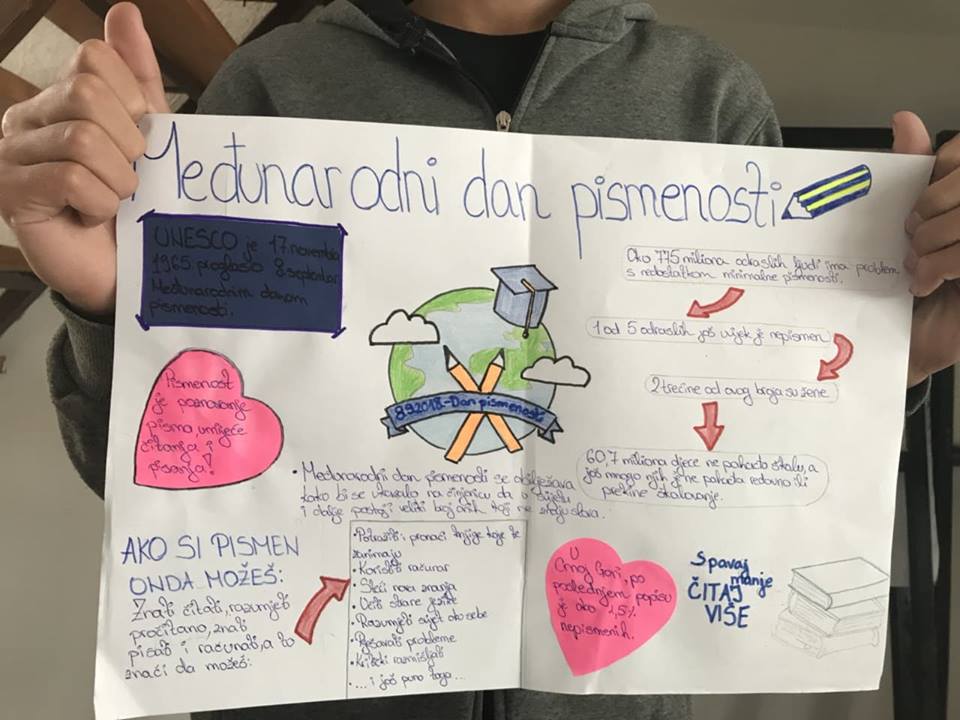 Međunarodni dan pismenosti
UNESCO je 17. novembra
1965. proglasio 8. septembar
Međunarodnim danom
pismenosti.
Oko 775 miliona odraslih ljudi ima problem
s nedostatkom minimalne pismenosti.
1 od 5 odraslih još uvijek je nepismen
2 trećine od ovog broja su žene.
60,7 miliona djece ne pohađa školu, a
još mnogo njih je ne pohađa redovno ili
prekine školovanje.
Pismenost
je poznavanje
pisma, umijeće
čitanja i
pisanja!
8.9.2018.-Dan pismenosti
• Međunarodni dan pismenosti se obilježava
kako bi se ukazalo na činjenicu da u svijetu
i dalje postoji veliki broj onih koji ne znaju slova.
AKO SI PISMEN
ONDA MOŽEŠ:
Znati čitati, razumjeti
pročitano, znati
pisati i računati, a to
znači da možeš:
• Potražiti i pronaći knjige koje te
zanimaju
• Koristiti računar
• Steći nova znanja
• Učiti strane jezike
• Razumjeti svijet oko sebe
• Rješavati probleme
• Kritički razmišljati
• ... i još puno toga...
U
Crnoj Gori, po
posljednjem popisu
je oko 1,5%
nepismenih.
Spavaj
manje
ČITAJ
VIŠE